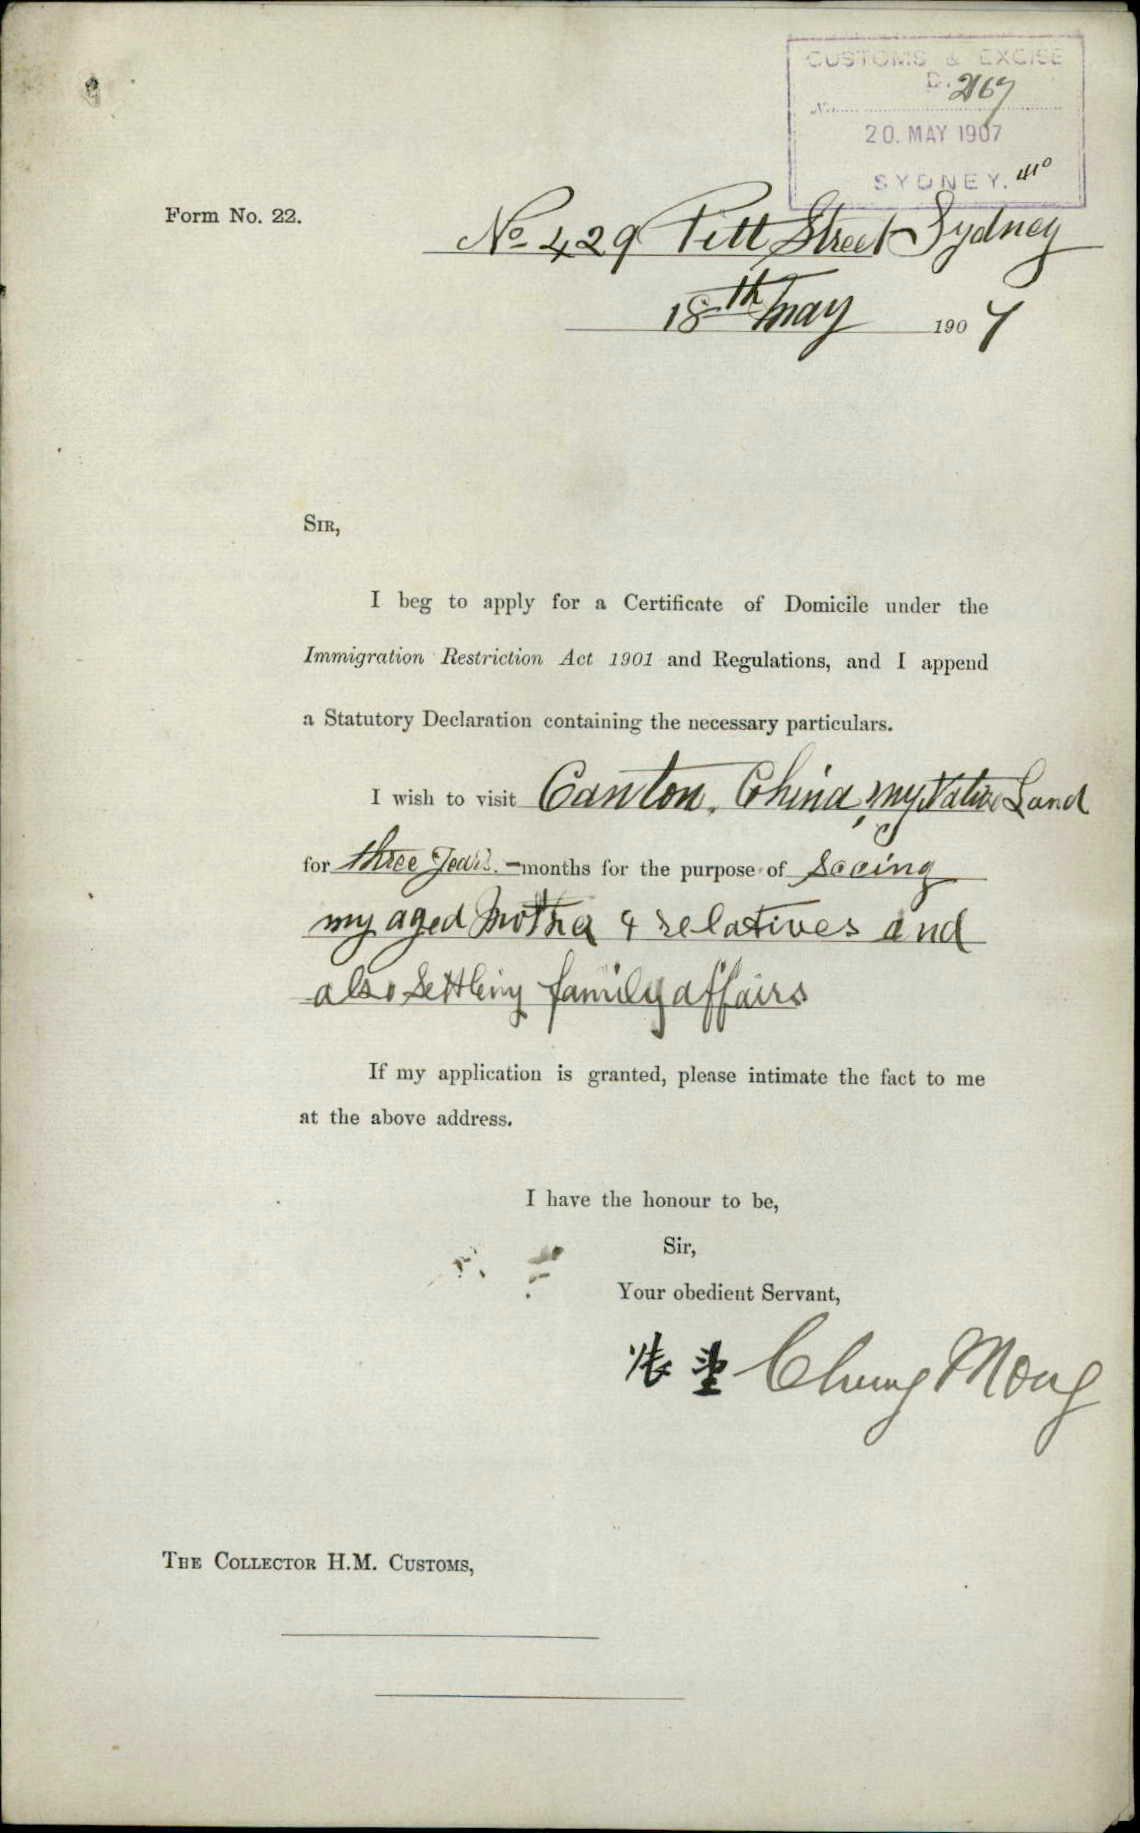 CUSTOMS & EXCISE
D. 2167
No.
20. MAY 1907
SYDNEY.
Form No. 22.
No 429 Pitt Street Sydney
18th May 1907
SIR,
I beg to apply for a Certificate of Domicile under the
Immigration Restriction Act 1901 and Regulations, and I append
a Statutory Declaration containing the necessary particulars.
I wish to visit Canton, China, my Native Land
for three Years.—months for the purpose of seeing
my aged Mother & relatives and
also settling family affairs
If my application is granted, please intimate the fact to me
at the above address.
I have the honour to be,
Sir,
Your obedient Servant,
張 Chung Mong
THE COLLECTOR H.M. CUSTOMS,